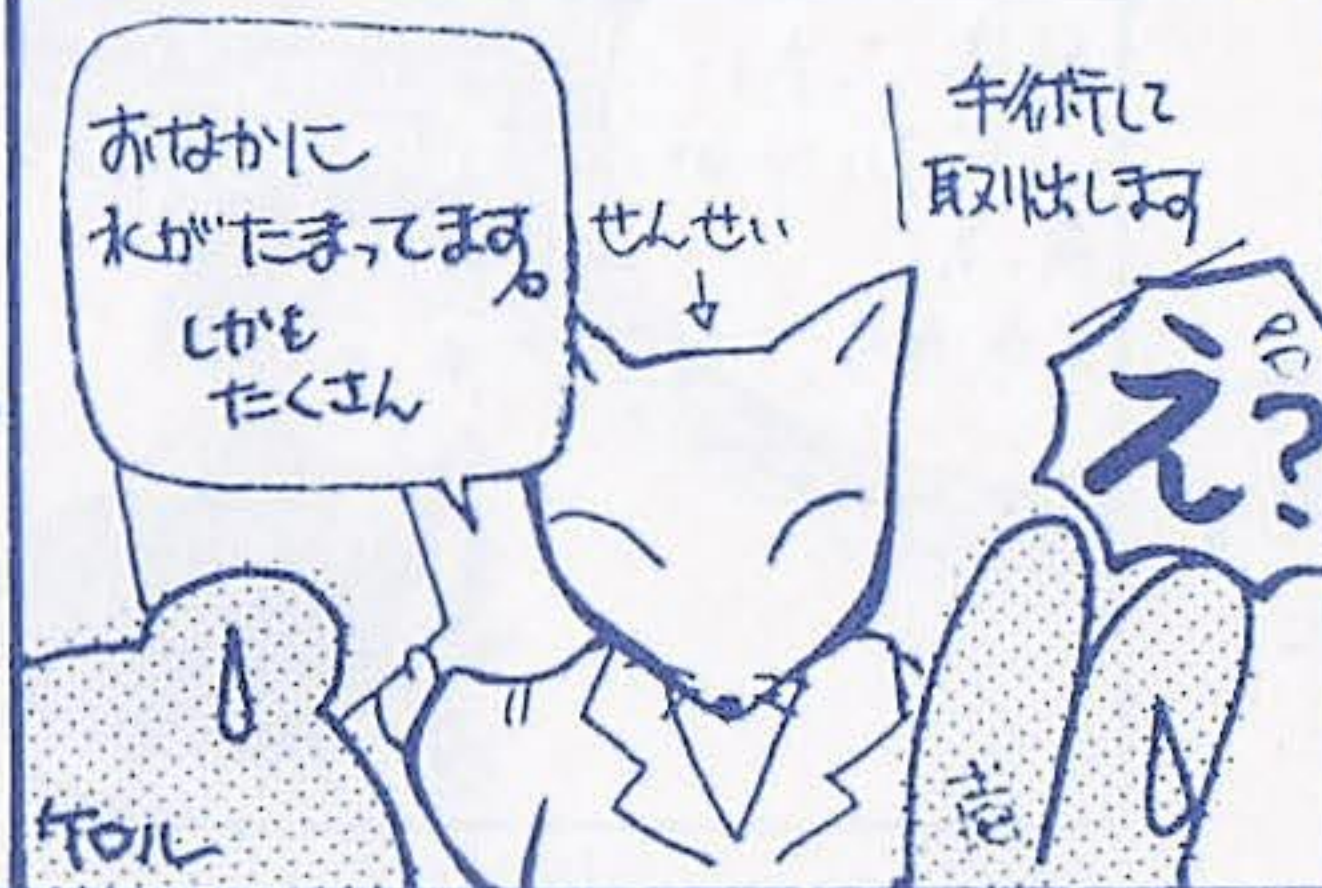 おなかに
水がたまってます。
しかも
たくさん
せんせい
↓
手術して
取り出します
え?
ケロル
壱